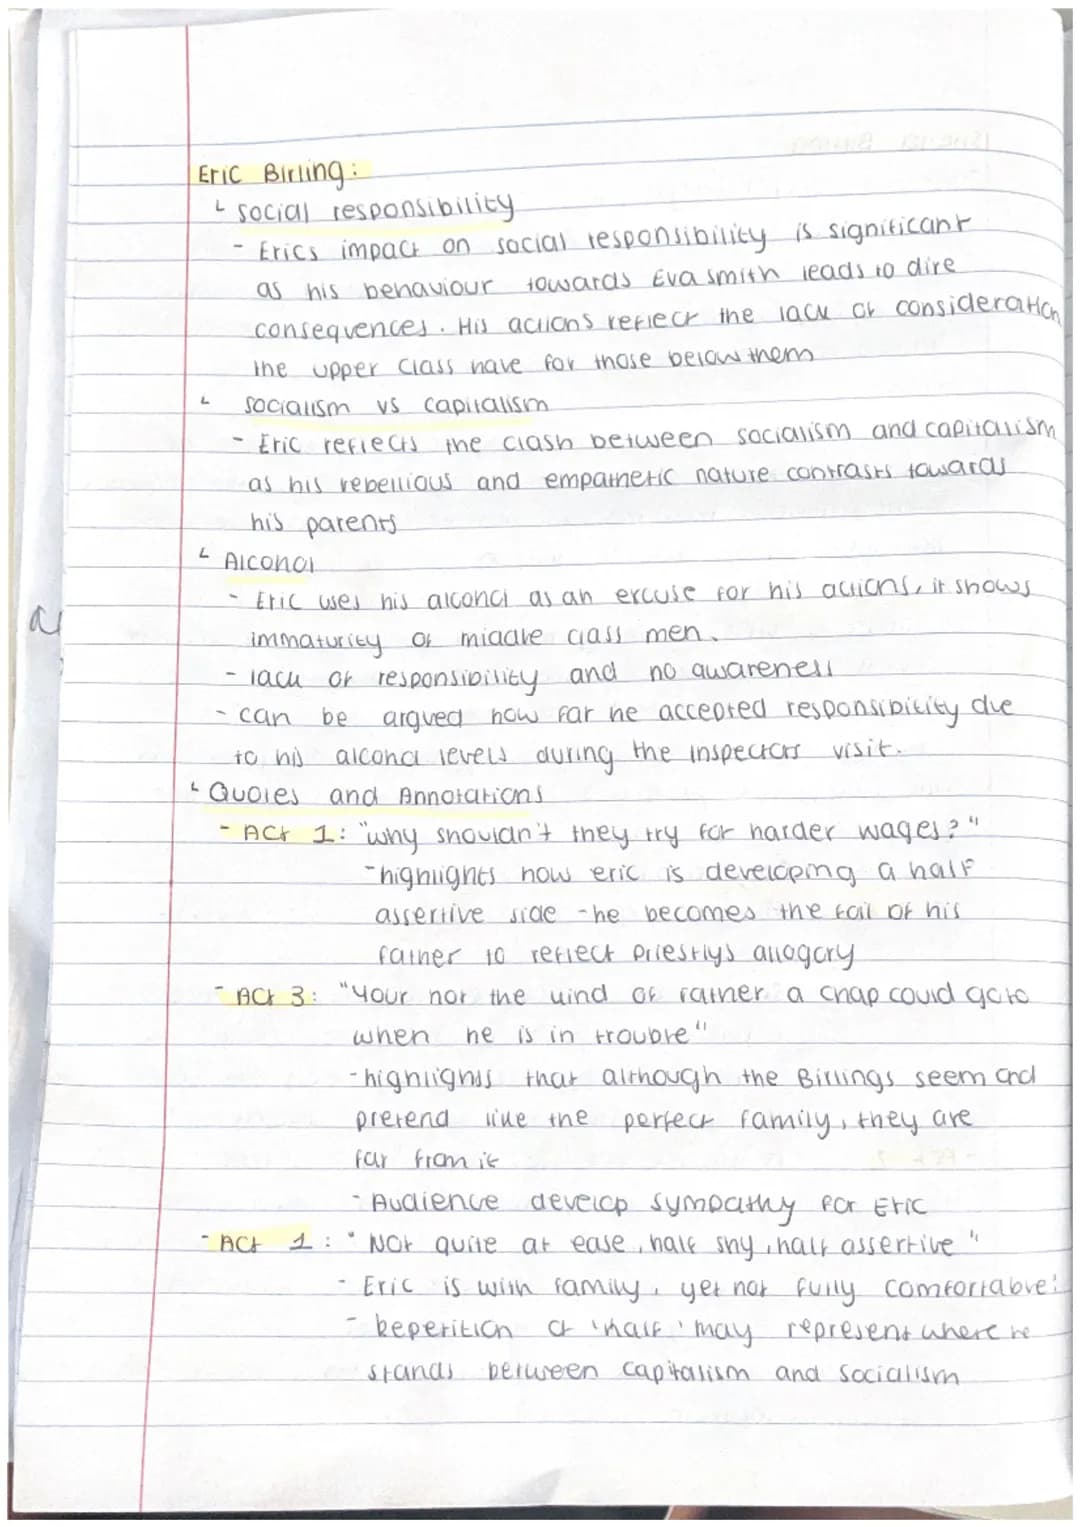 Eric Birling:
└ social responsibility
- Erics impact on social responsibility is significant
as his behaviour towards Eva smith leads to dire
consequences. His actions reflect the lack of consideration
the upper class have for those below them
└ socialism vs capitalism
- Eric reflects the clash between socialism and capitalism
as his rebellious and empathetic nature contrasts towards
his parents
└ Alcohol
- Eric uses his alcohol as an excuse for his actions, it shows
immaturity of middle class men.
- lack of responsibility and no awareness
- can be argued how far he accepted responsibility due
to his alcohol levels during the inspectors visit.
└ Quotes and Annotations
- Act 1: "why shouldn't they try for harder wages?"
- highlights how eric is developing a half
assertive side - he becomes the foil of his
father to reflect Priestlys allogory
- Act 3: "Your not the kind of father a chap could go to
when he is in trouble"
- highlights that although the Birlings seem and
pretend like the perfect family, they are
far from it
- Audience develop sympathy for Eric
- Act 1: "Not quite at ease, half shy, half assertive"
- Eric is with family, yet not fully comfortable:
- Repetition of 'half' may represent where he
stands between capitalism and socialism